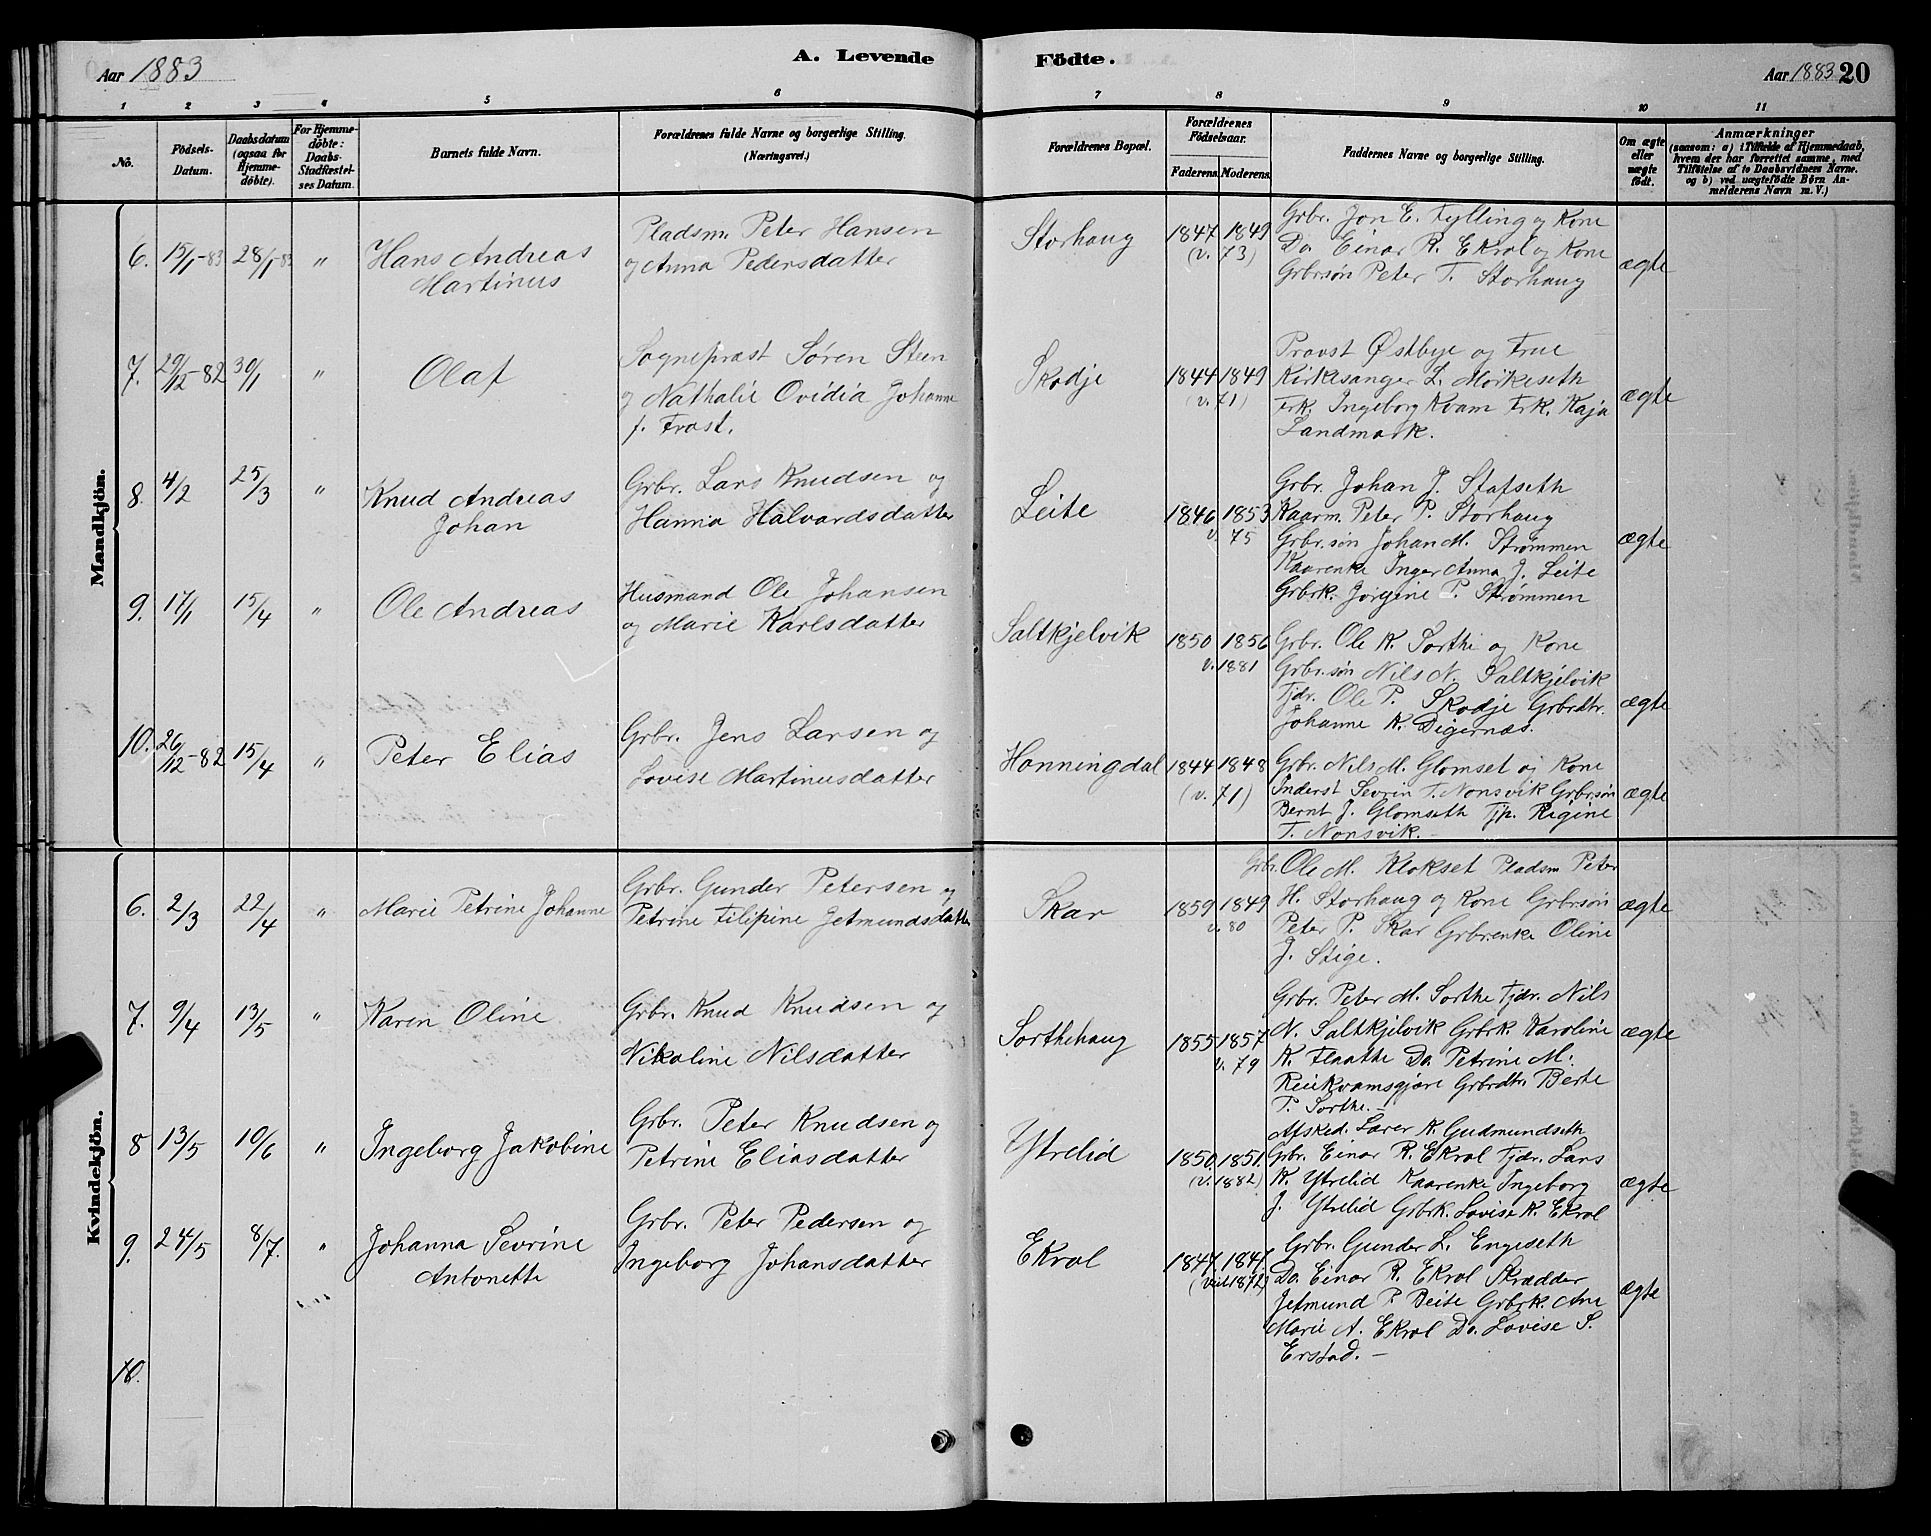 Aar 1883
A. Levende Födte.
Aar 1883 20
1 2 3 4 5 6 7 8 9 10 11
No.
Födsels-
Datum.
Daabsdatum
(ogsaa for
Hjemme-
döbte).
For Hjemme-
döbte:
Daabs-
Stadfæstel-
ses Datum.
Barnets fulde Navn.
Forældrenes fulde Navne og borgerlige Stilling.
(Næringsvei.)
Forældrenes Bopæl.
Forældrenes
Födselsaar.
Faderens. Moderens.
Faddernes Navne og borgerlige Stilling.
Om ægte
eller
uægte
födt.
Anmærkninger
(saasom: a) i Tilfælde af Hjemmedaab,
hvem der har forrettet samme, med
Tilföielse af to Daabsvidners Navne.
og b) ved uægtefödte Börn An-
melderens Navn m. V.)
Mandkjön.
6. 15/1-83 28/1-83 "
Hans Andreas
Martinus
Pladsm. Peter Hansen
og Anna Pedersdatter
Storhaug
1847 1849
(v. 73)
Grbr. Jon E. Fylling og Kone
Do. Einar R. Ekrol og Kone
Grbrsøn Peter T. Storhaug
ægte
7. 29/12-82 30/1 "
Olaf
Sognepræst Søren Steen
og Nathalie Ovidia Johanne
f. Frost.
Skodje
1844 1849
(v. 71)
Provst Østbye og Frue
Kirkesanger L. Mørkeseth
Frk. Ingeborg Kvam Frk. Kaja
Landmark.
ægte
8. 4/2 25/3 "
Knud Andreas
Johan
Grbr. Lars Knudsen og
Hanna Halvardsdatter
Leite
1846 1853
v. 75
Grbr. Johan J. Stafseth
Kaarm. Peter P. Storhaug
Grbr.søn Johan M. Strømmen
Kaarenke Inger Anna J. Leite
Grbrk. Jørgine P. Strømmen
ægte
9. 17/1 15/4 "
Ole Andreas
Husmand Ole Johansen
og Marie Karlsdatter
Saltkjelvik
1850 1856
v. 1881
Grbr. Ole K. Sorthe og Kone
Grbr.søn Nils N. Saltkjelvik
Tjdr. Ole P. Skodje Grbrdtr.
Johanne K. Digernæs.
ægte
10. 26/12-82 15/4 "
Peter Elias
Grbr. Jens Larsen og
Lovise Martinusdatter
Honningdal
1844 1848
(v. 71)
Grbr. Nils M. Glomset og Kone
Inderst Sevrin T. Nonsvik Grbrsøn
Bernt J. Glomseth Tjp. Regine
T. Nonsvik.
ægte
Kvindekjön.
6. 2/3 22/4 "
Marie Petrine Johanne
Grbr. Gunder Petersen og
Petrine Filipine Jetmundsdatter
Skar
1859 1849
v. 80
Grbr. Ole M. Klokset Pladsm Peter
H. Storhaug og Kone Grbrsøn
Peter P. Skar Grbr.enke Oline
J. Stige.
ægte
7. 9/4 13/5 "
Karen Oline
Grbr. Knud Knudsen og
Nikoline Nilsdatter
Sorthehaug
1855 1857
v. 79
Grbr. Peter M. Sorthe Tjdr. Nils
N. Saltkjelvik Grbrk. Karoline
K. Flaathe Do. Petrine M.
Reiekvamsgjære Grbrdtr. Berte
P. Sorthe.-
ægte
8 13/5 10/6 "
Ingeborg Jakobine
Grbr. Peter Knudsen og
Petrine Eliasdatter
Ytrelid
1850 1851.
(v. 1882)
Afsked. Lærer K. Gudmundseth
Grbr. Einar R. Ekrol Tjdr. Lars
K. Ytrelid Kaarenke Ingeborg
J. Ytrelid Grbrk. Lovise K. Ekrol
ægte
9. 24/5 8/7. "
Johanna Sevrine
Antonette
Grbr. Peter Pedersen og
Ingeborg Johansdatter
Ekrol
1847 1847.
(viet 1872)
Grbr. Gunder L. Engeseth
Do. Einar R. Ekrol Skrædder
Jetmund P. Leite Grbrk. Ane
Marie A. Ekrol Do. Lovise S.
Erstad.-
ægte
10.